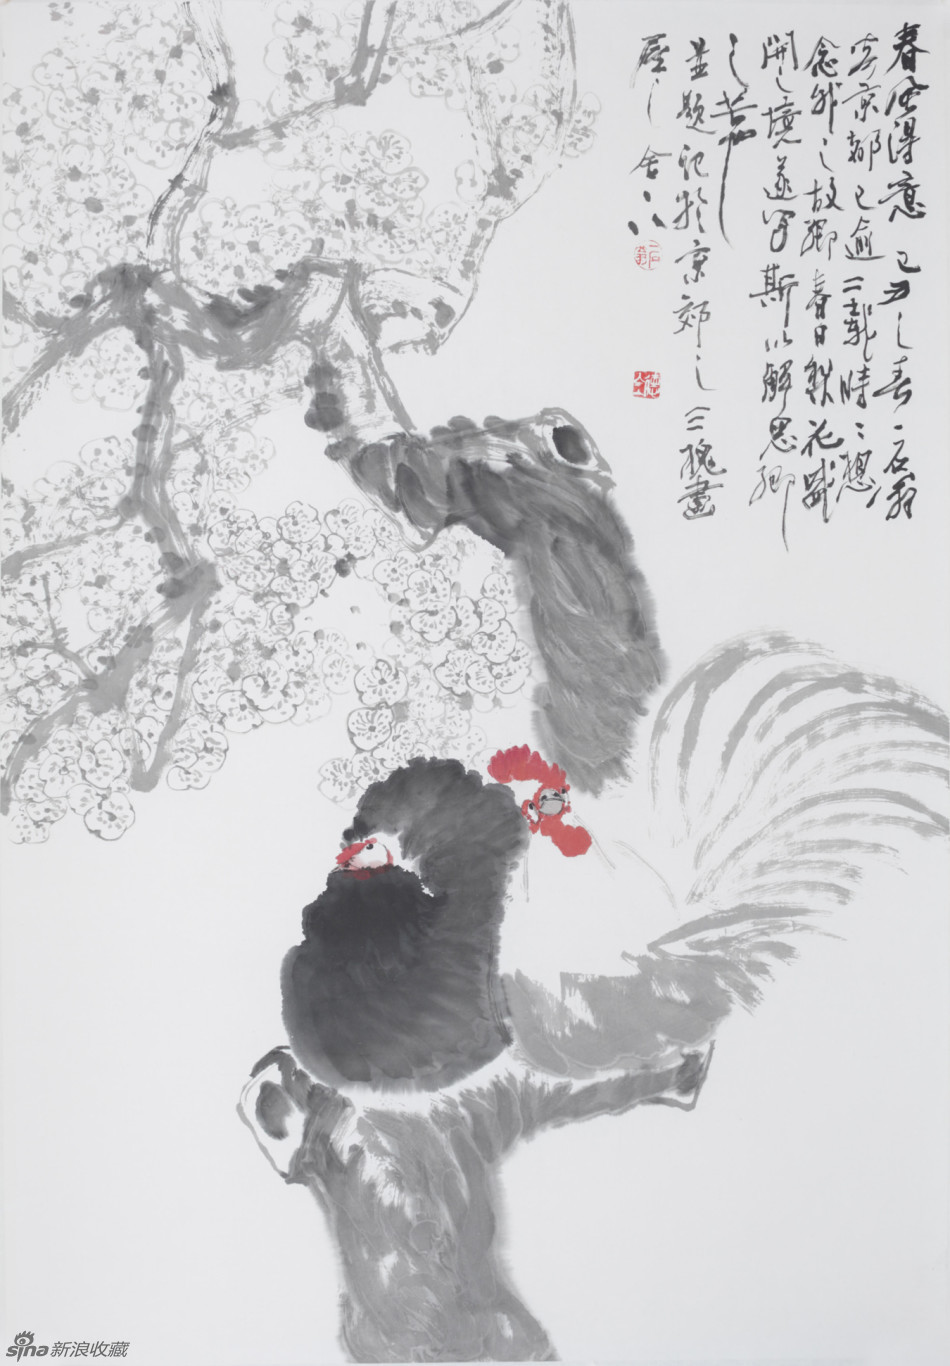 春风得意 己丑之春一石翁
客京都已逾二載時〻想
念我之故鄉春日花盛
開之境遂写斯以解思鄉
之苦
並題記於京郊之三槐畫
屋之舍下
sina新浪收藏